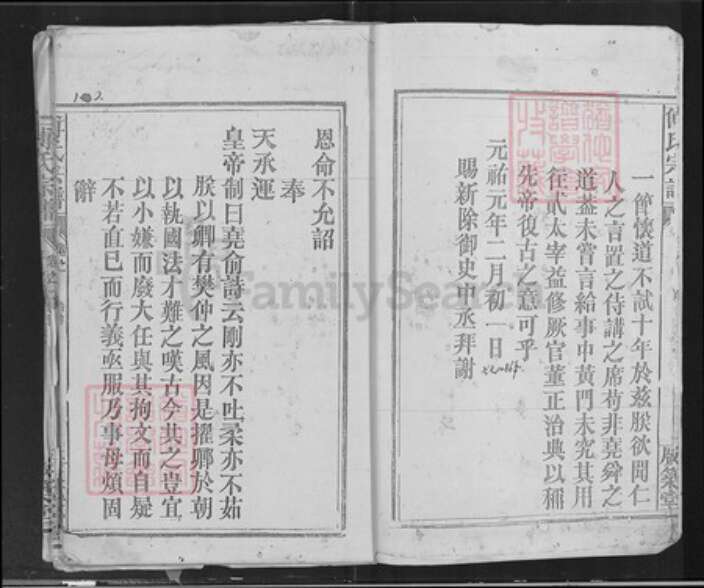 一節懷道不試十年於茲朕欲聞仁
人之言置之侍講之席苟非堯舜之
道葢未嘗言給事中黃門未究其用
徃貳太宰益修厥官董正治典以稱
先帝復古之意可乎
元祐元年二月初一日
賜新除御史中丞拜謝
恩命不允詔
奉
天承運
皇帝制曰堯俞詩云剛亦不吐柔亦不茹
朕以卿有樊仲之風因是擢卿於朝
以執國法才難之嘆古今其之豈宜
以小嫌而廢大任與其拘文而自疑
不若直巳而行義亟服乃事毋煩固
辭
傅氏宗譜
版築堂
FamilySearch